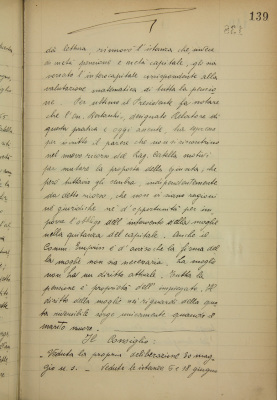 139
da lettura, rinnovò l'istanza che, invece
di metà pensione e metà capitale, gli sia
versato l'intero capitale corrispondente alla
valutazione matematica di tutta la pensio
ne. Per ultimo il Presidente fa notare
che l'on. designato Relatore di
questa pratica e oggi assente, ha espresso
per iscritto il parere che non si riscontrino
nel nuovo ricorso del Rag. motivi
per mutare la proposta della Giunta, che
però tuttavia gli sembra, indipendentemente
da detto ricorso, che non vi siano ragioni
nè giuridiche nè d'opportunità per im
porre l'obbligo dell'intervento della moglie
nella quitanza del capitale. Anche il
Comm. è d'avviso che la firma del
la moglie non sia necessaria. La moglie
non ha un diritto attuale. Tutta la
pensione è proprietà dell'impiegato. Il
diritto della moglie nei riguardi della quo
ta riversibile sorge unicamente quando il
marito muore.
Il Consiglio:
- Veduta la propria deliberazione 30 mag
gio u. s. - Vedute le istanze 6 e 18 giugno